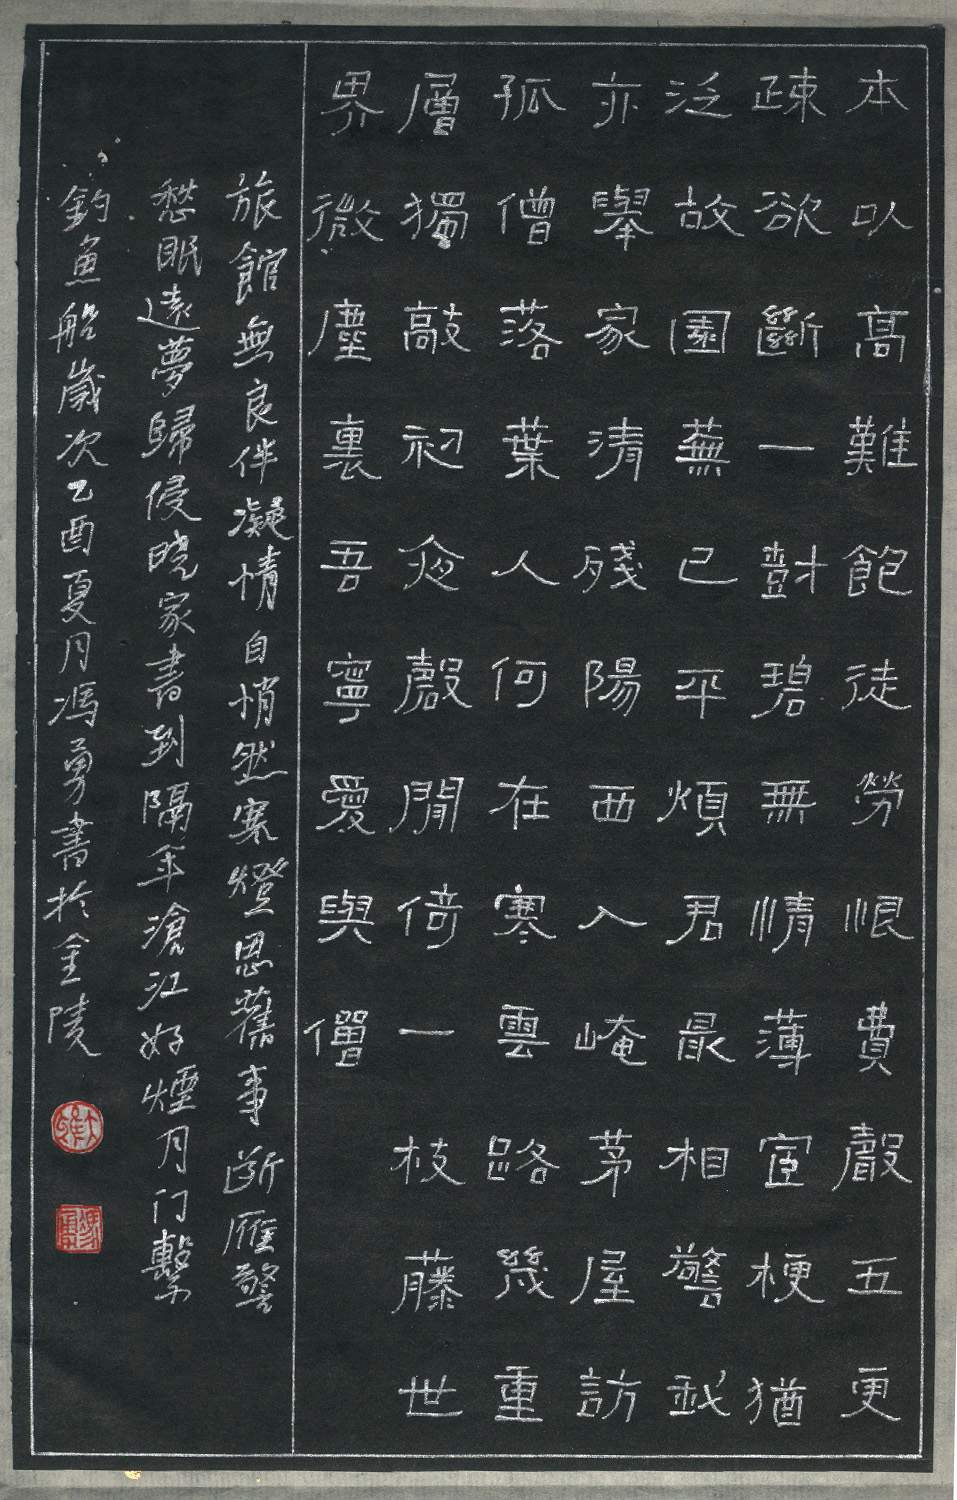 本以高難飽徒勞恨費聲五更
疎欲斷一樹碧無情薄宦梗猶
泛故園蕪已平煩君最相警我
亦舉家清殘陽西入崦茅屋訪
孤僧落葉人何在寒雲路幾重
層獨敲初夜磬閒倚一枝藤世
界微塵裏吾寧愛與僧
旅館無良伴凝情自悄然寒燈思舊事断雁警
愁眠遠夢歸侵曉家書到隔年滄江好煙月门繫
釣魚船歲次乙酉夏月馮勇書於金陵